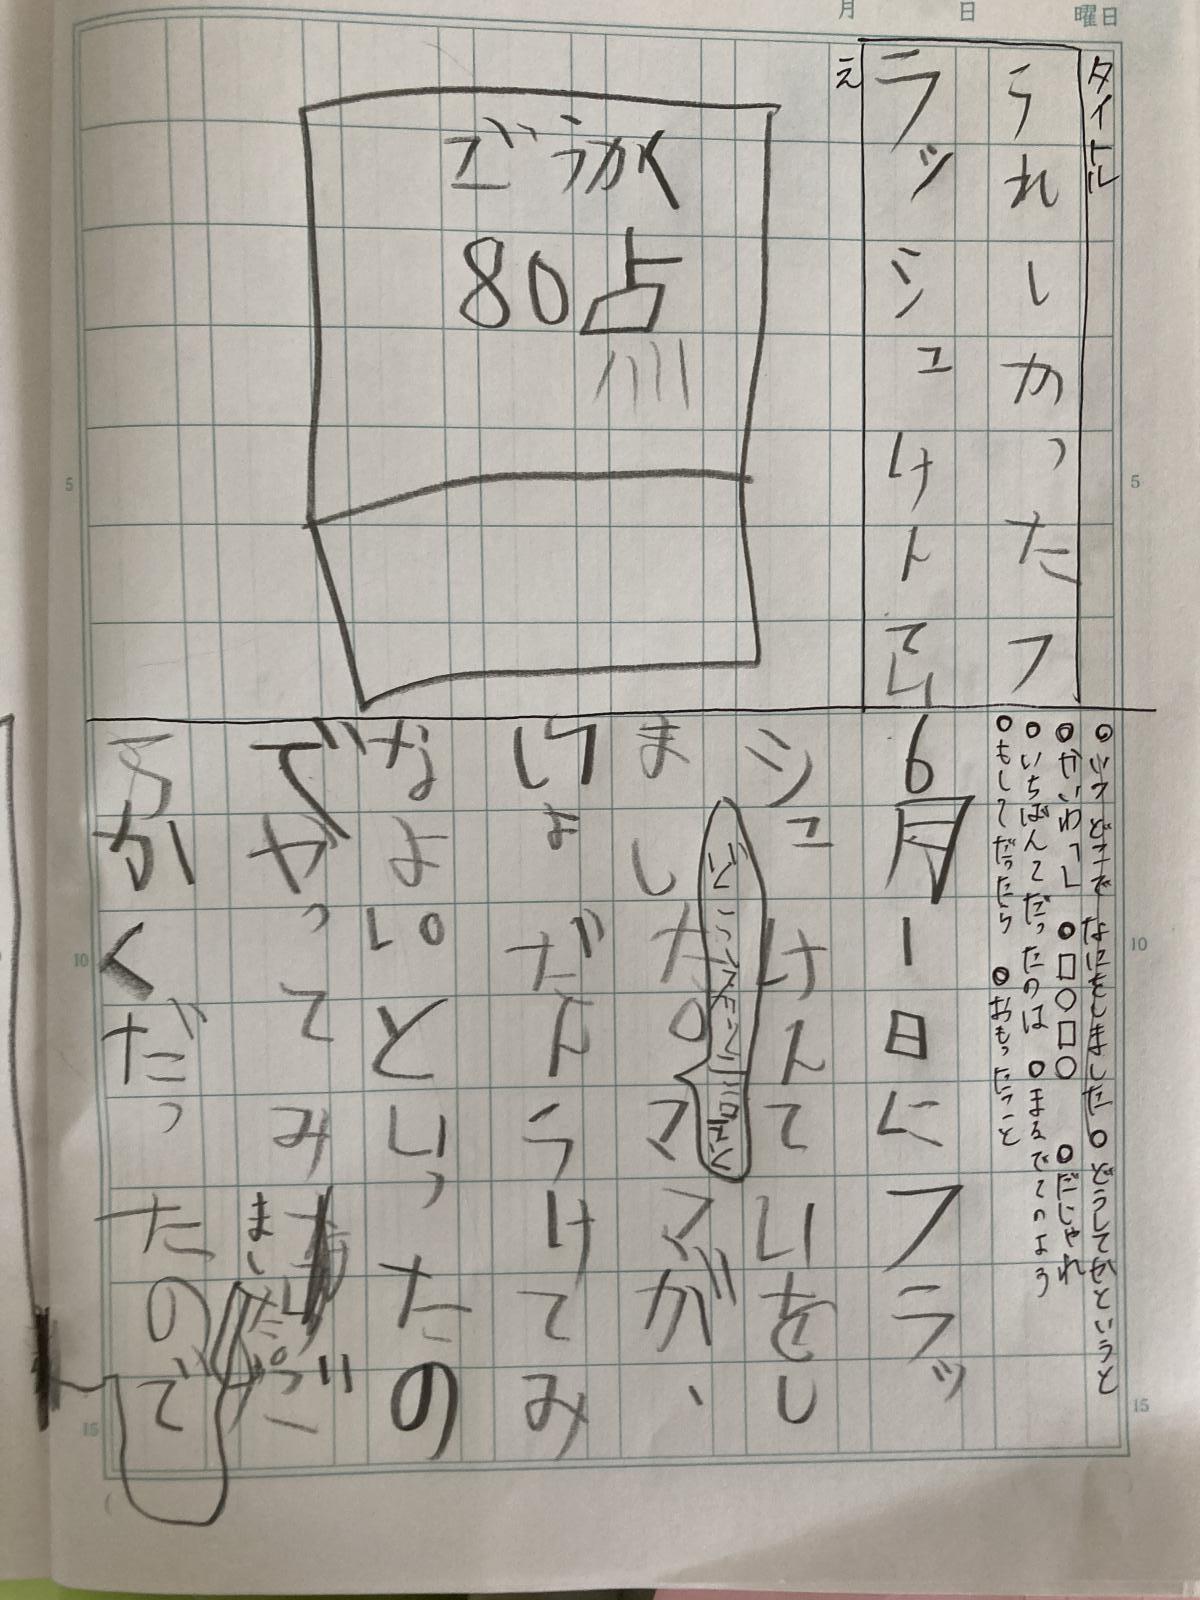 月 日 曜日
タイトル
うれしかったフ
ラッシュけトてい
え
ごうかく
80点
◎いつどこでなにをしました○どうしてかというと
○かいわ「」○□○□○ ○だじゃれ
○いちばんてだったのは○まるでてのよう
○もしてだったら ○おもったこと
6月1日にフラッ
シュけんていをし
ました。ママが、
けょだトうけてみ
なよ。といったの
でやってみ
ました
ごうかくだったので
5
10
15
5
10
15